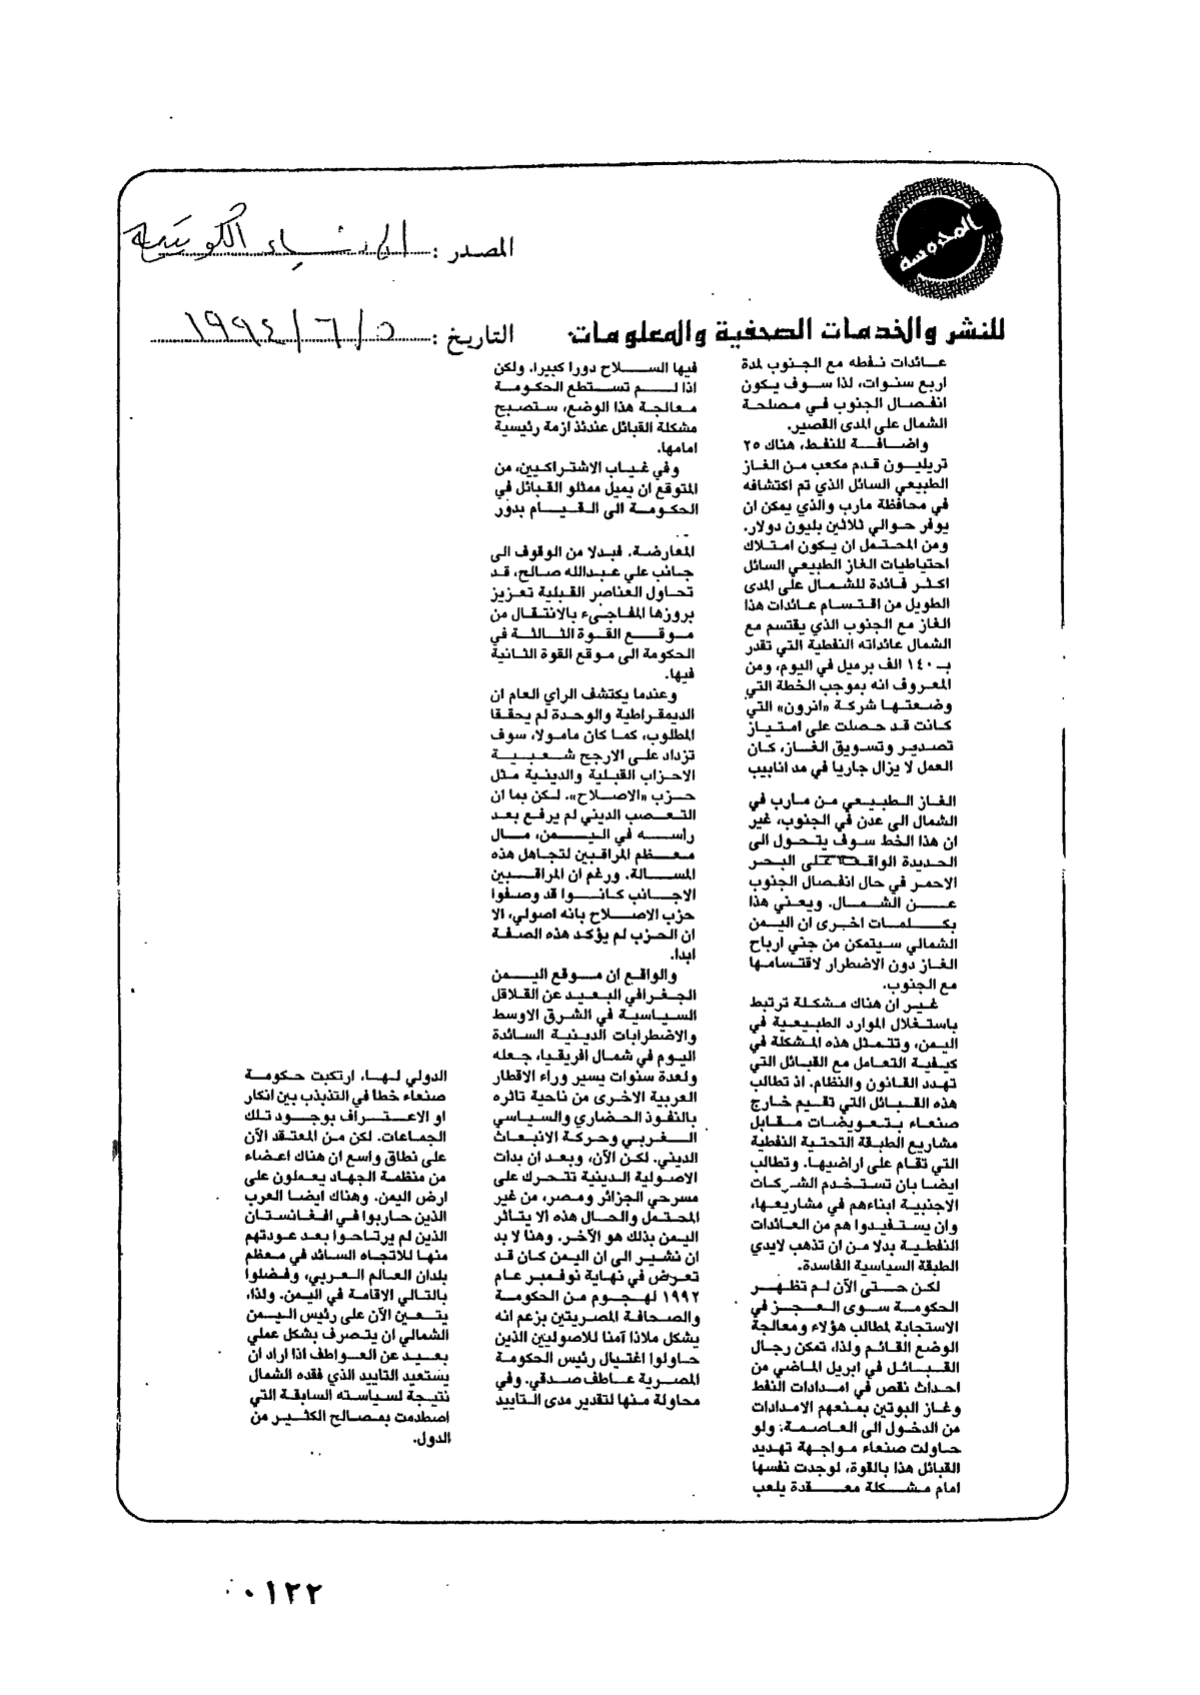 المحروسة
المصدر : الأنباء الكويتية
للنشر والخدمات الصحفية والمعلومات
التاريخ : ٥/٦/١٩٩٤
عائدات نفطه مع الجنوب لمدة
اربع سنوات، لذا سوف يكون
انفصال الجنوب في مصلحة
الشمال على المدى القصير.
واضافة للنفط، هناك ٢٥
تريليون قدم مكعب من الغاز
الطبيعي السائل الذي تم اكتشافه
في محافظة مارب والذي يمكن ان
يوفر حوالي ثلاثين بليون دولار.
ومن المحتمل ان يكون امتلاك
احتياطيات الغاز الطبيعي السائل
اكثر فائدة للشمال على المدى
الطويل من اقتسام عائدات هذا
الغاز مع الجنوب الذي يقتسم مع
الشمال عائداته النفطية التي تقدر
بـ ١٤٠ الف برميل في اليوم، ومن
المعروف انه بموجب الخطة التي
وضعتها شركة «انرون» التي
كانت قد حصلت على امتياز
تصدير وتسويق الغاز، كان
العمل لا يزال جاريا في مد انابيب
الغاز الطبيعي من مارب في
الشمال الى عدن في الجنوب، غير
ان هذا الخط سوف يتحول الى
الحديدة على البحر
الاحمر في حال انفصال الجنوب
عن الشمال. ويعني هذا
بكلمات اخرى ان اليمن
الشمالي سيتمكن من جني ارباح
الغاز دون الاضطرار لاقتسامها
مع الجنوب.
غير ان هناك مشكلة ترتبط
باستغلال الموارد الطبيعية في
اليمن، وتتمثل هذه المشكلة في
كيفية التعامل مع القبائل التي
تهدد القانون والنظام. اذ تطالب
هذه القبائل التي تقيم خارج
صنعاء بتعويضات مقابل
مشاريع الطبقة التحتية النفطية
التي تقام على اراضيها. وتطالب
ايضا بان تستخدم الشركات
الاجنبية ابناءهم في مشاريعها،
وان يستفيدوا هم من العائدات
النفطية بدلا من ان تذهب لايدي
الطبقة السياسية الفاسدة.
لكن حتى الآن لم تظهر
الحكومة سوى العجز في
الاستجابة لمطالب هؤلاء ومعالجة
الوضع القائم ولذا، تمكن رجال
القبائل في ابريل الماضي من
احداث نقص في امدادات النفط
وغاز البوتين بمنعهم الامدادات
من الدخول الى العاصمة: ولو
حاولت صنعاء مواجهة تهديد
القبائل هذا بالقوة، لوجدت نفسها
امام مشكلة معقدة يلعب
فيها السلاح دورا كبيرا. ولكن
اذا لم تستطع الحكومة
معالجة هذا الوضع، ستصبح
مشكلة القبائل عندئذ ازمة رئيسية
امامها.
وفي غياب الاشتراكيين، من
المتوقع ان يميل ممثلو القبائل في
الحكومة الى القيام بدور
المعارضة. فبدلا من الوقوف الى
جانب علي عبدالله صالح، قد
تحاول العناصر القبلية تعزيز
بروزها المفاجىء بالانتقال من
موقع القوة الثالثة في
الحكومة الى موقع القوة الثانية
فيها.
وعندما يكتشف الراي العام ان
الديمقراطية والوحدة لم يحققا
المطلوب، كما كان مامولا، سوف
تزداد على الارجح شعبية
الاحزاب القبلية والدينية مثل
حزب «الاصلاح». لكن بما ان
التعصب الديني لم يرفع بعد
رأسه في اليمن، مال
معظم المراقبين لتجاهل هذه
المسالة. ورغم ان المراقبين
الاجانب كانوا قد وصفوا
حزب الاصلاح بانه اصولي، الا
ان الحزب لم يؤكد هذه الصفة
ابدا.
والواقع ان موقع اليمن
الجغرافي البعيد عن القلاقل
السياسية في الشرق الاوسط
والاضطرابات الدينية السائدة
اليوم في شمال افريقيا، جعله
ولعدة سنوات يسير وراء الاقطار
العربية الاخرى من ناحية تاثره
بالنفوذ الحضاري والسياسي
الغربي وحركة الانبعاث
الديني. لكن الآن، وبعد ان بدات
الاصولية الدينية تتحرك على
مسرحي الجزائر ومصر، من غير
المحتمل والحال هذه الا يتاثر
اليمن بذلك هو الآخر. وهنا لا بد
ان نشير الى ان اليمن كان قد
تعرض في نهاية نوفمبر عام
١٩٩٢ لهجوم من الحكومة
والصحافة المصريتين بزعم انه
يشكل ملاذا آمنا للاصوليين الذين
حاولوا اغتيال رئيس الحكومة
المصرية عاطف صدقي. وفي
محاولة منها لتقدير مدى التاييد
الدولي لها، ارتكبت حكومة
صنعاء خطا في التذبذب بين انكار
او الاعتراف بوجود تلك
الجماعات. لكن من المعتقد الآن
على نطاق واسع ان هناك اعضاء
من منظمة الجهاد يعملون على
ارض اليمن. وهناك ايضا العرب
الذين حاربوا في افغانستان
الذين لم يرتاحوا بعد عودتهم
منها للاتجاه السائد في معظم
بلدان العالم العربي، وفضلوا
بالتالي الاقامة في اليمن. ولذا،
يتعين الآن على رئيس اليمن
الشمالي ان يتصرف بشكل عملي
بعيد عن العواطف اذا اراد ان
يستعيد التاييد الذي فقده الشمال
نتيجة لسياسته السابقة التي
اصطدمت بمصالح الكثير من
الدول.
٠١٢٢